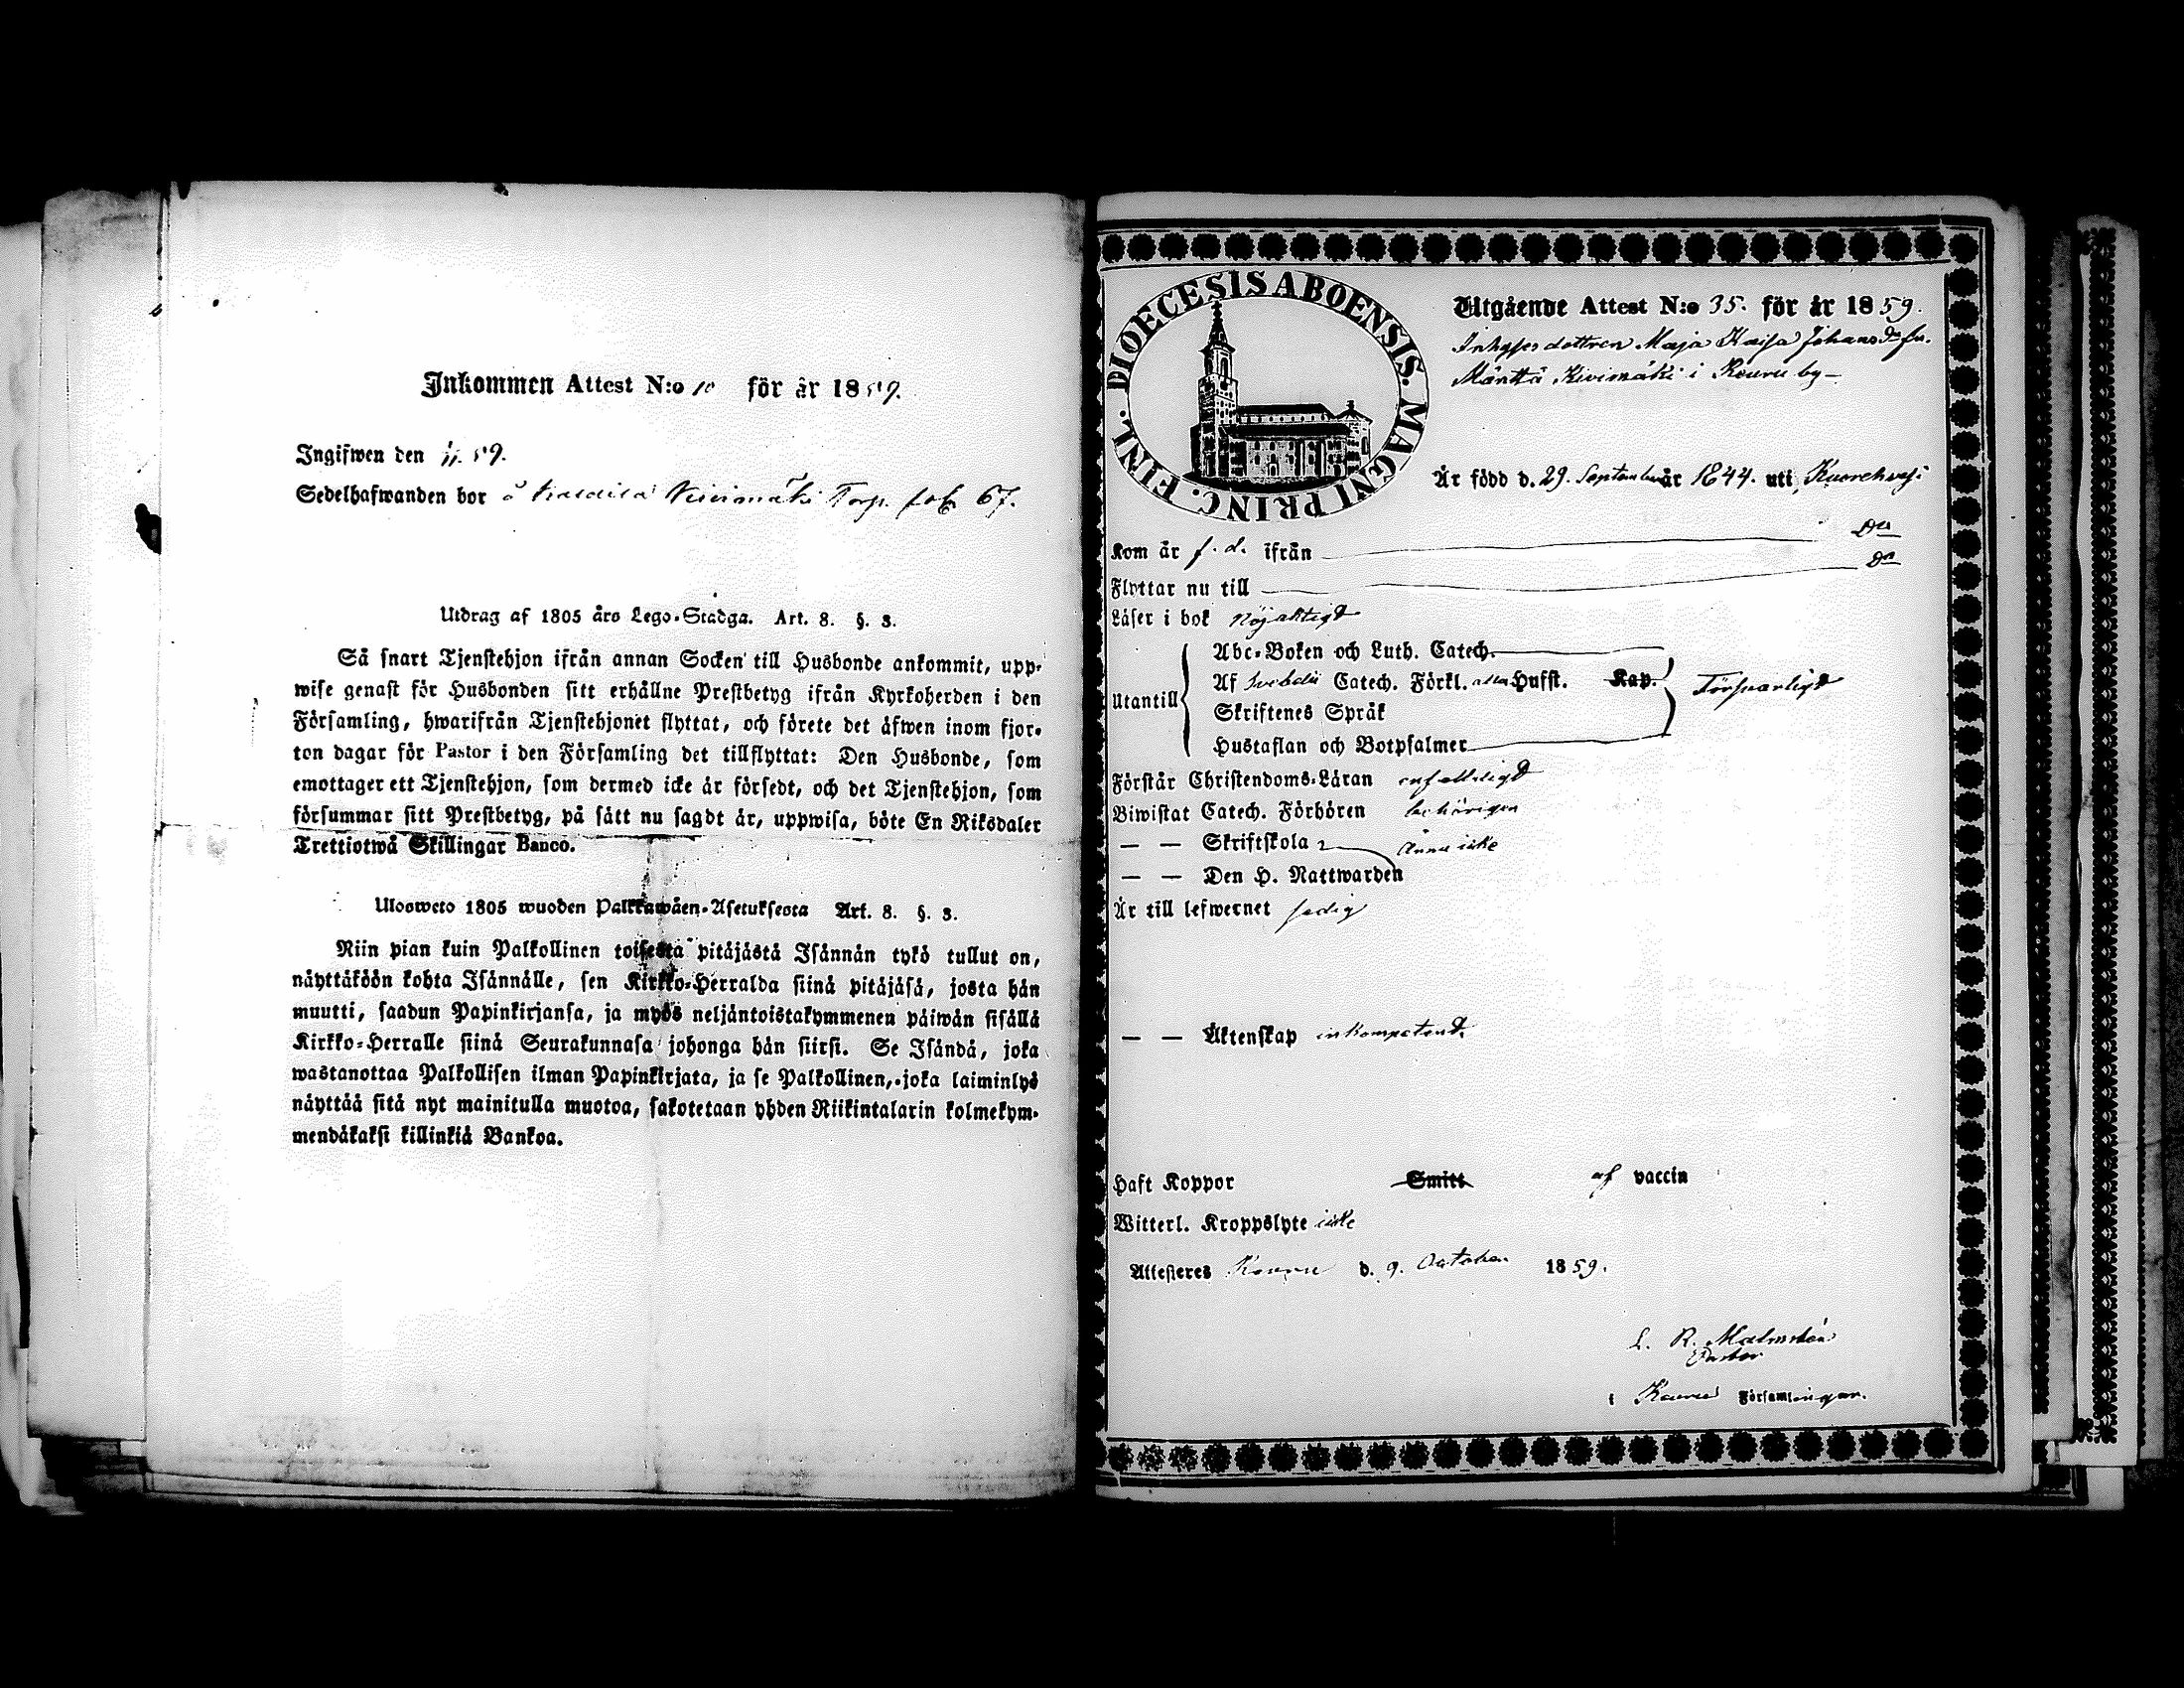 Inkommen Attest N:o 10 för år 1859.
Ingifwen den 59.
Sedelhafwanden bor å Kivimäki Torp. fol. 67.
Utdrag af 1805 års Lego-Stadga. Art. 8. §. 3.
Så snart Tjenstehjon ifrån annan Socken till Husbonde ankommit, upp-
wise genast för Husbonden sitt erhållne Prestbetyg ifrån Kyrkoherden i den
Församling, hwarifrån Tjenstehjonet flyttat, och förete det äfwen inom fjor-
ton dagar för Pastor i den Församling det tillflyttat: Den Husbonde, som
emottager ett Tjenstehjon, som dermed icke är försedt, och det Tjenstehjon, som
försummar sitt Prestbetyg, på sätt nu sagdt är, uppwisa, böte En Riksdaler
Trettiotwå Skillingar Banco.
Ulosweto 1805 wuoden Palkkawäen-Asetuksesta Art. 8. §. 3.
Niin pian kuin Palkollinen toisesta pitäjästä Isännän tykö tullut on,
näyttäköön kohta Isännälle, sen Kirkko-Herralda siinä pitäjäsä, josta hän
muutti, saadun Papinkirjansa, ja myös neljäntoistakymmenen päiwän sisällä
Kirkko-Herralle siinä Seurakunnasa johonga hän siirsi. Se Isändä, joka
wastanottaa Palkollisen ilman Papinkirjata, ja se Palkollinen, joka laiminlyö
näyttää sitä nyt mainitulla muotoa, sakotetaan yhden Riikintalarin kolmekym-
mendäkaksi killinkiä Bankoa.
DIOECESIS ABOENSIS. MAGNI PRINC. FINL.
Utgående Attest N:o 35. för år 1859.
Inhyses dottren Maja Kaisa Johansdr fr.
Mänttä Kivimäki i Keuru by
Är född d. 29. September år 1844. uti Kuorehvesi
Kom år f. d. ifrån Do
Flyttar nu till Do
Läser i bok nöjaktigt
Utantill
Abc-Boken och Luth. Catech.
Af Svebelii Catech. Förkl. alla Hufst. Kap.
Skriftenes Språk
Hustaflan och Botpsalmer
Försvarligt
Förstår Christendoms-Läran enfaldeligt
Biwistat Catech. Förhören behörigen
— — Skriftskola
ännu icke
— — Den H. Nattwarden
Är till lefwernet ledig
— — Äktenskap inkompetent.
Haft Koppor Smitt af vaccin
Witterl. Kroppslyte icke
Attesteres Keuru d. 9. October 1859.
L. R. Malmstén
Pastor
i Keuru Församlingar.